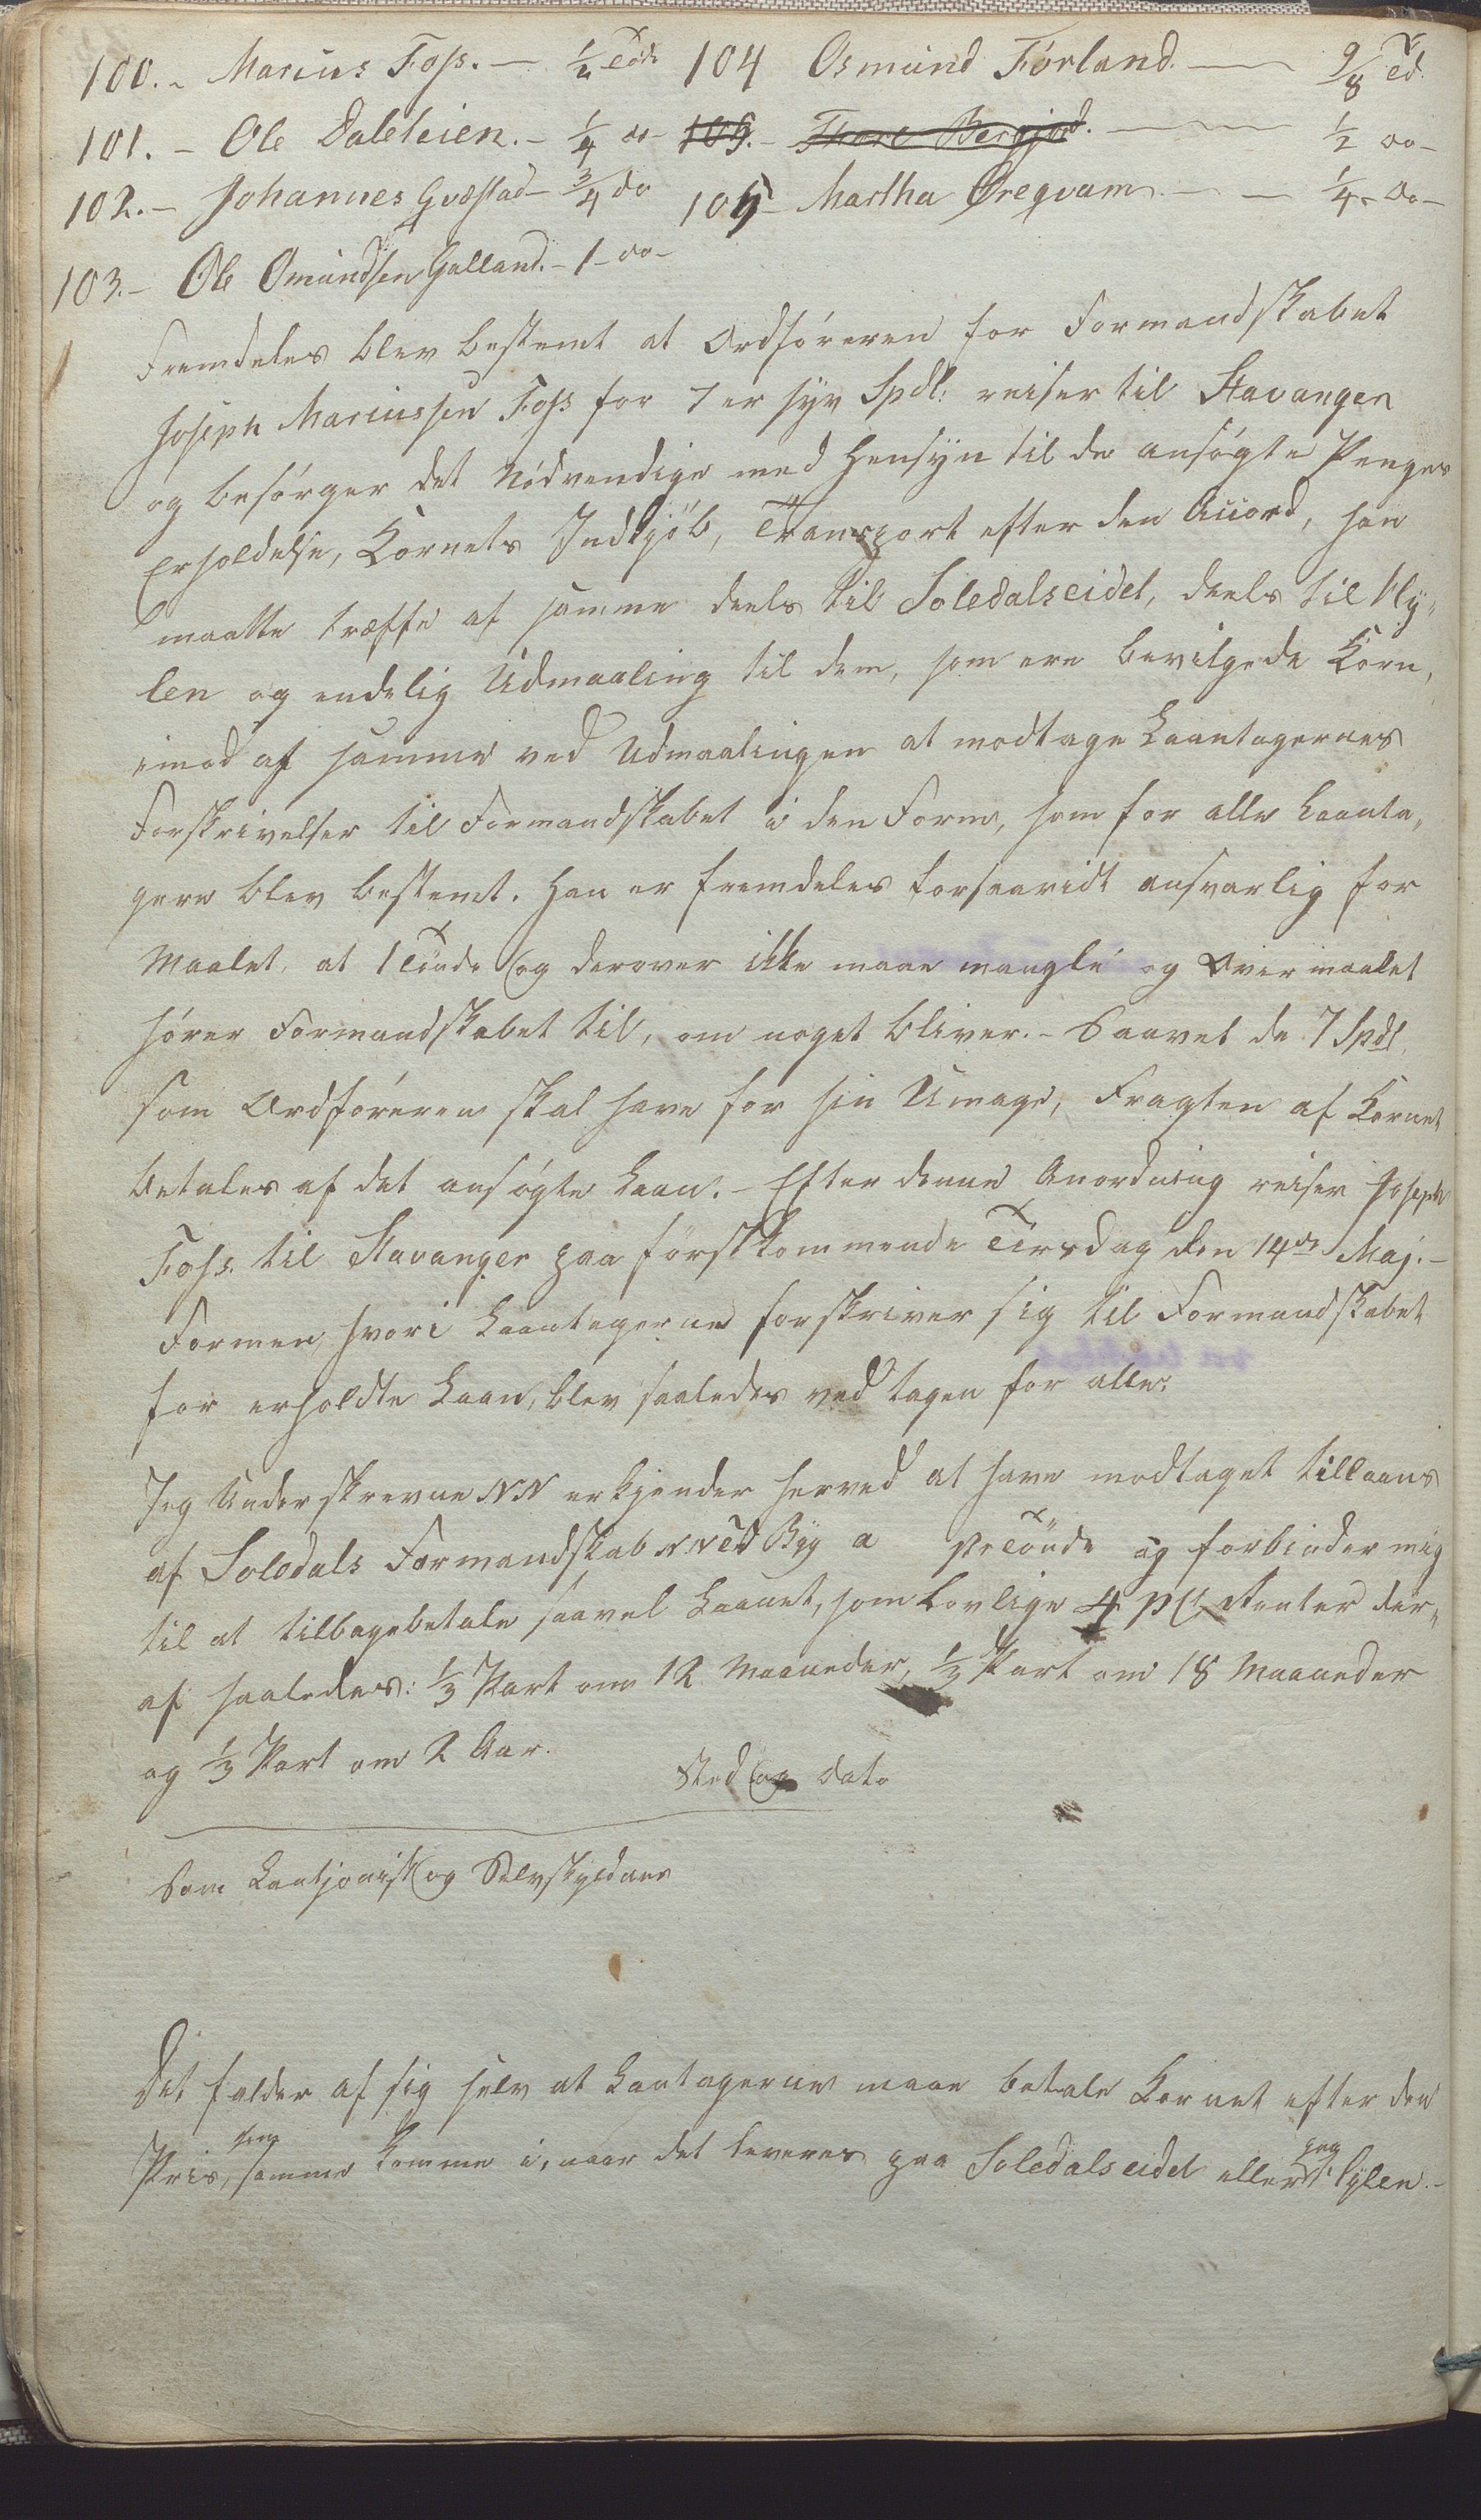 100. - Marius Foss. - 1/2 Tøde
101. - Ole Daleteien. - 1/4 do -
102. - Johannes Qvæstad - 3/4 do
103. - Ole Omundsen Galland. - 1 - do -
104 Osmund Førland. - 9/8 Td.
105. - Thore Bergjord. - 1/2 do -
105 - Martha Øreqvam. - 1/4 - do -
Fremdeles blev bestemt at Ordføreren for Formandskabet
Joseph Mariussen Foss for 7 er syv Spdl: reiser til Stavanger
og besørger det Nødvendige med Hensyn til de ansøgte Penges
Erholdelse, Kornets Indkjøb, Transport efter den Accord, han
maatte træffe af samme deels til Soledalseidet, deels til Hy,,
len og endelig Udmaaling til dem, som ere bevilgede Korn,
imod af samme ved Udmaalingen at modtage Laantagernes
Forskrivelser til Formandskabet i den Form, som for alle Laanta,,
gere blev bestemt. Han er fremdeles forsaavidt ansvarlig for
Maalet, at 1 Tønde og derover ikke maae mangle og Overmaalet
hører Formandskabet til, om noget bliver. - Saavel de 7 Spdl.
som Ordføreren skal have for sin Umage, Fragten af Kornet
betales af det ansøgte Laan. - Efter denne Anordning reiser Joseph
Foss. til Stavanger paa førstkommende Tirsdag den 14de Maj. -
Formen, hvori Laantagerne forskriver sig til Formandskabet
for erholdte Laan, blev saaledes vedtagen for alle:
Jeg Underskrevne NN erkjender herved at have modtaget tillaans
af Soledals Formandskab NN Td Byg a pr Tønde og forbinder mig
til at tilbagebetale saavel Laanet, som lovlige 4 pCt Renter der,,
af saaledes: 1/3 Part om 12 Maaneder, 1/3 Part om 18 Maaneder
og 1/3 Part om 2 Aar.
Sted og Dato
Som Kautjonist og Selvskyldner
Det falder af sig selv at Laantagerne maae betale Kornet efter den
Pris, som samme komme i, naar det leveres paa Soledalseidet eller paa Hylen. -